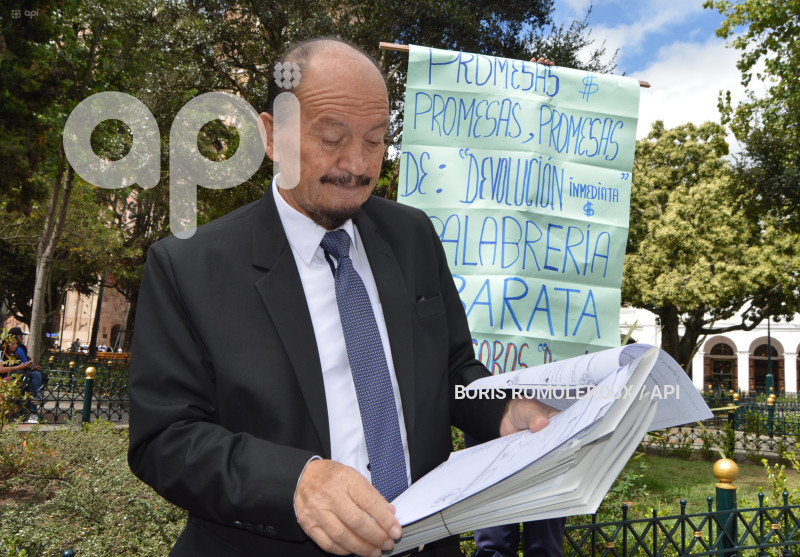 api
PROMESAS $
PROMESAS, PROMESAS
DE: "DEVOLUCIÓN INMEDIATA"
$
PALABRERIA
BARATA
api
BORIS ROMOLEROUX / API